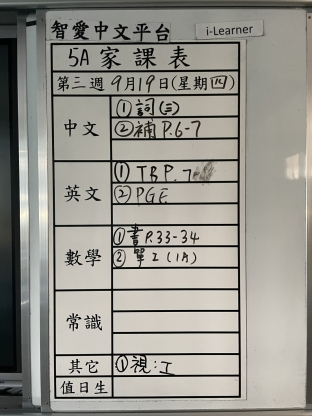 智愛中文平台
i-Learner
5A 家課表
第三週 9月19日(星期四)
中文
①詞(三)
②補 P.6-7
英文
① TB P.7
② PGE
數學
①書 P.33-34
② 單I (1A)
常識
其它
①視:工
值日生